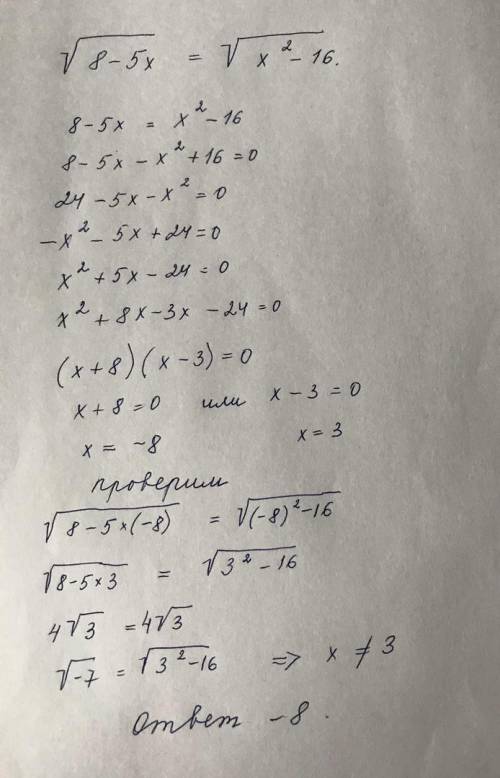 √(8-5x) = √(x²-16).
8-5x = x²-16
8-5x-x²+16=0
24-5x-x²=0
-x²-5x+24=0
x²+5x-24=0
x²+8x-3x-24=0
(x+8)(x-3)=0
x+8=0 или x-3=0
x=-8 x=3
проверим
√(8-5×(-8)) = √((-8)²-16)
√(8-5×3) = √(3²-16)
4√3 = 4√3
√-7 = √(3²-16) => x ≠ 3
Ответ -8.